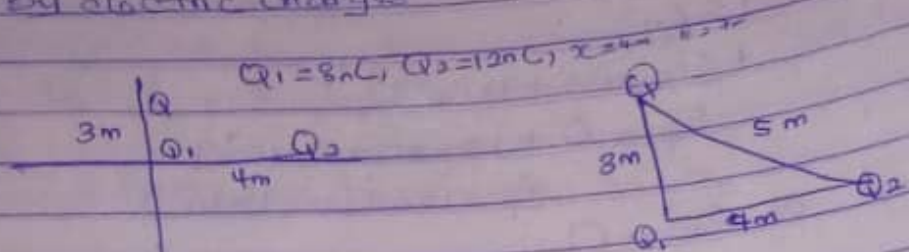 Q₁ = 8nC, Q₂ = 12nC, x = 4m
Q
3m
Q₁ Q₂
4m
Q
5 m
3m
Q₂
4m
Q₁